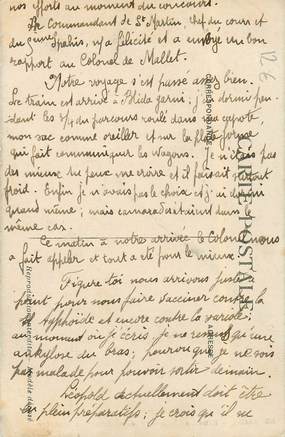 nos efforts au moment du concours.
Le Commandant de St Martin, chef du cours et
du Spahis, m'a félicité et a envoyé un bon
rapport au Colonel de Mallet.
Notre voyage s'est passé assez bien.
Le train est arrivé à Blida garni; j'ai dormi pen-
dant les du parcours roulé dans ma capote,
mon sac comme oreiller et sur la plate forme
qui fait communiquer les wagons. Je n'étais pas
des mieux tu peux me croire et il faisait plutôt
froid. Enfin je n'avais pas le choix et j'ai dormi
quand même; mais camarades étaient dans
même cas.
Ce matin à notre arrivée le Colonel nous
a fait appeler et tout a été pour le mieux.
Figure toi nous arrivons juste
point pour nous faire vacciner contre la
typhoïde et encore contre la variole;
au moment où j'écris je ne ressens qu'une
ankylose du bras; pourvu que je ne sois
pas malade pour pouvoir sortir demain.
Léopold actuellement doit être
en plein préparatifs; je crois qu'il ne
12.6
CARTE POSTALE
CORRESPONDANCE
ADRESSE